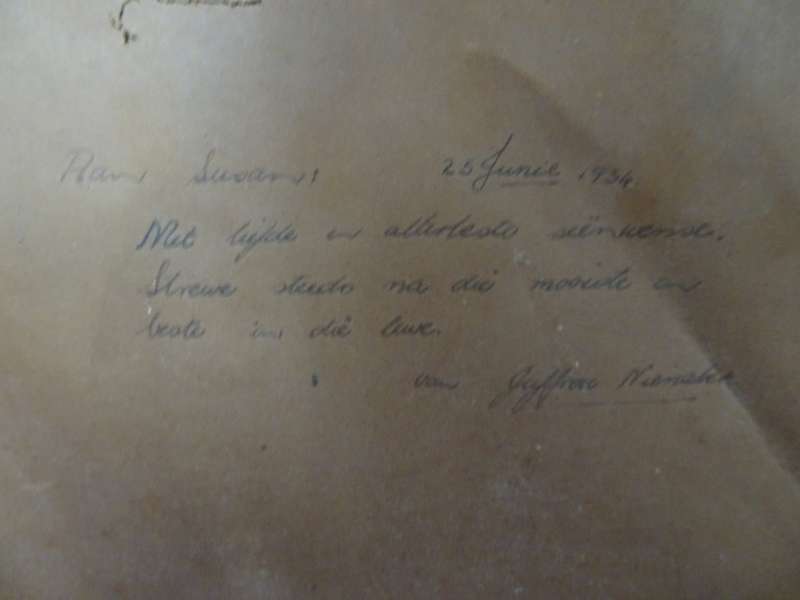 Aan Susan: 25 Junie 1934.
Met liefde en allerbeste seënwense.
Strewe steeds na die mooiste en
beste in die lewe.
van Juffrou